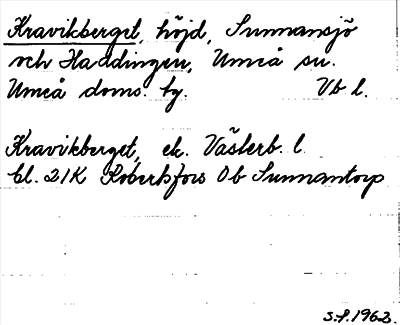 Kravikberget, höjd, Sunnansjö
och Haddingen, Umeå sn.
Umeå doms. by. Vb l.
Kravikberget, ek. Västerb. l.
bl. 21K Robertsfors 0b Sunnantorp
S.P. 1962.